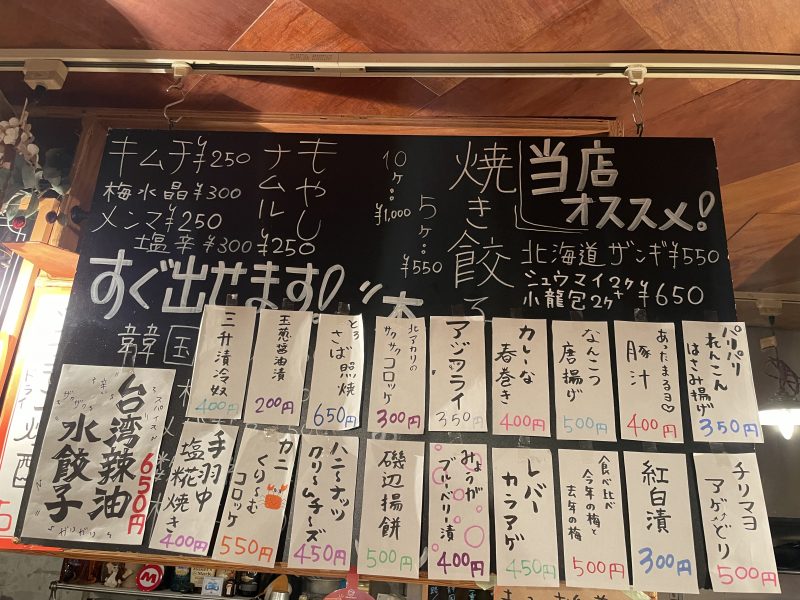 当店
オススメ!
北海道ザンギ¥550
シュウマイ2ヶ+
小龍包2ヶ
¥650
焼き餃子
10ヶ‥
¥1,000
5ヶ‥
¥550
もやし
ナムル
¥250
キムチ¥250
梅水晶¥300
メンマ¥250
塩辛¥300
すぐ出せます!
韓国
パリパリ
れんこん
はさみ揚げ
350円
あったまるヨ♡
豚汁
400円
なんこつ
唐揚げ
500円
カレーな
春巻き
400円
アジフライ
350円
北アカリの
サクサクコロッケ
300円
とろ
さば照焼
650円
玉葱醤油漬
200円
三升漬冷奴
400円
チリマヨ
アゲドリ
500円
紅白漬
300円
食べ比べ
今年の梅と
去年の梅
500円
レバー
カラアゲ
450円
みょうが
ブルーベリー漬
400円
磯辺揚餅
500円
ハニーナッツ
クリームチーズ
450円
カニ
くり〜む
コロッケ
550円
手羽中
塩糀焼き
400円
台湾辣油
水餃子
650円
ドライ